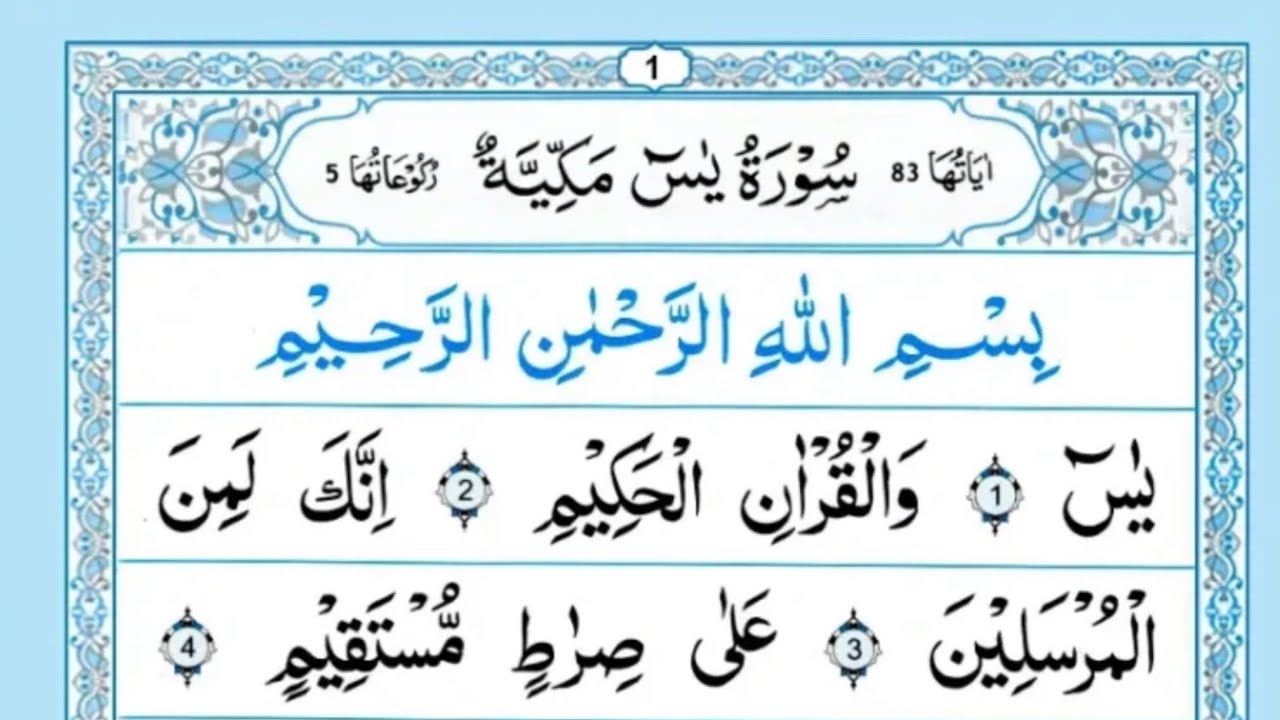 1
اٰيَاتُهَا 83 سُوْرَةُ يٰسٓ مَكِّيَّةٌ رُكُوْعَاتُهَا 5
بِسْمِ اللّٰهِ الرَّحْمٰنِ الرَّحِيْمِ
يٰسٓ 1 وَالْقُرْاٰنِ الْحَكِيْمِ 2 اِنَّكَ لَمِنَ
الْمُرْسَلِيْنَ 3 عَلٰى صِرٰطٍ مُّسْتَقِيْمٍ 4